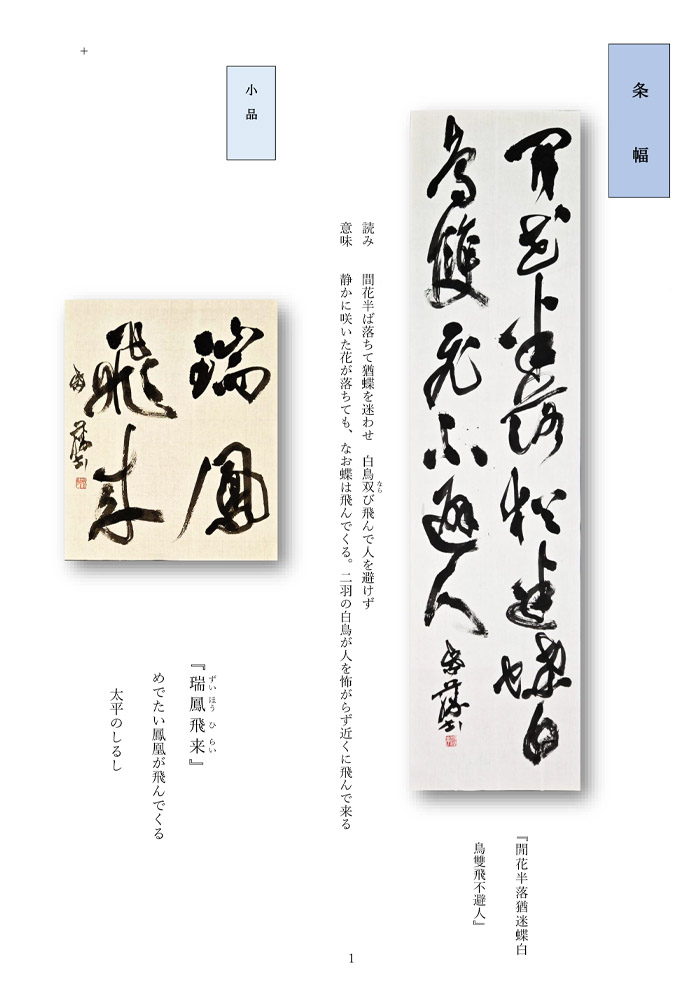 条幅
閒花半落猶迷蝶白
鳥雙飛不避人
『閒花半落猶迷蝶白
鳥雙飛不避人』
読み　間花半ば落ちて猶蝶を迷わせ　白鳥双び飛んで人を避けず
なら
意味　静かに咲いた花が落ちても、なお蝶は飛んでくる。二羽の白鳥が人を怖がらず近くに飛んで来る
小品
瑞鳳
飛来
『瑞鳳飛来』
ずいほうひらい
めでたい鳳凰が飛んでくる
太平のしるし
1